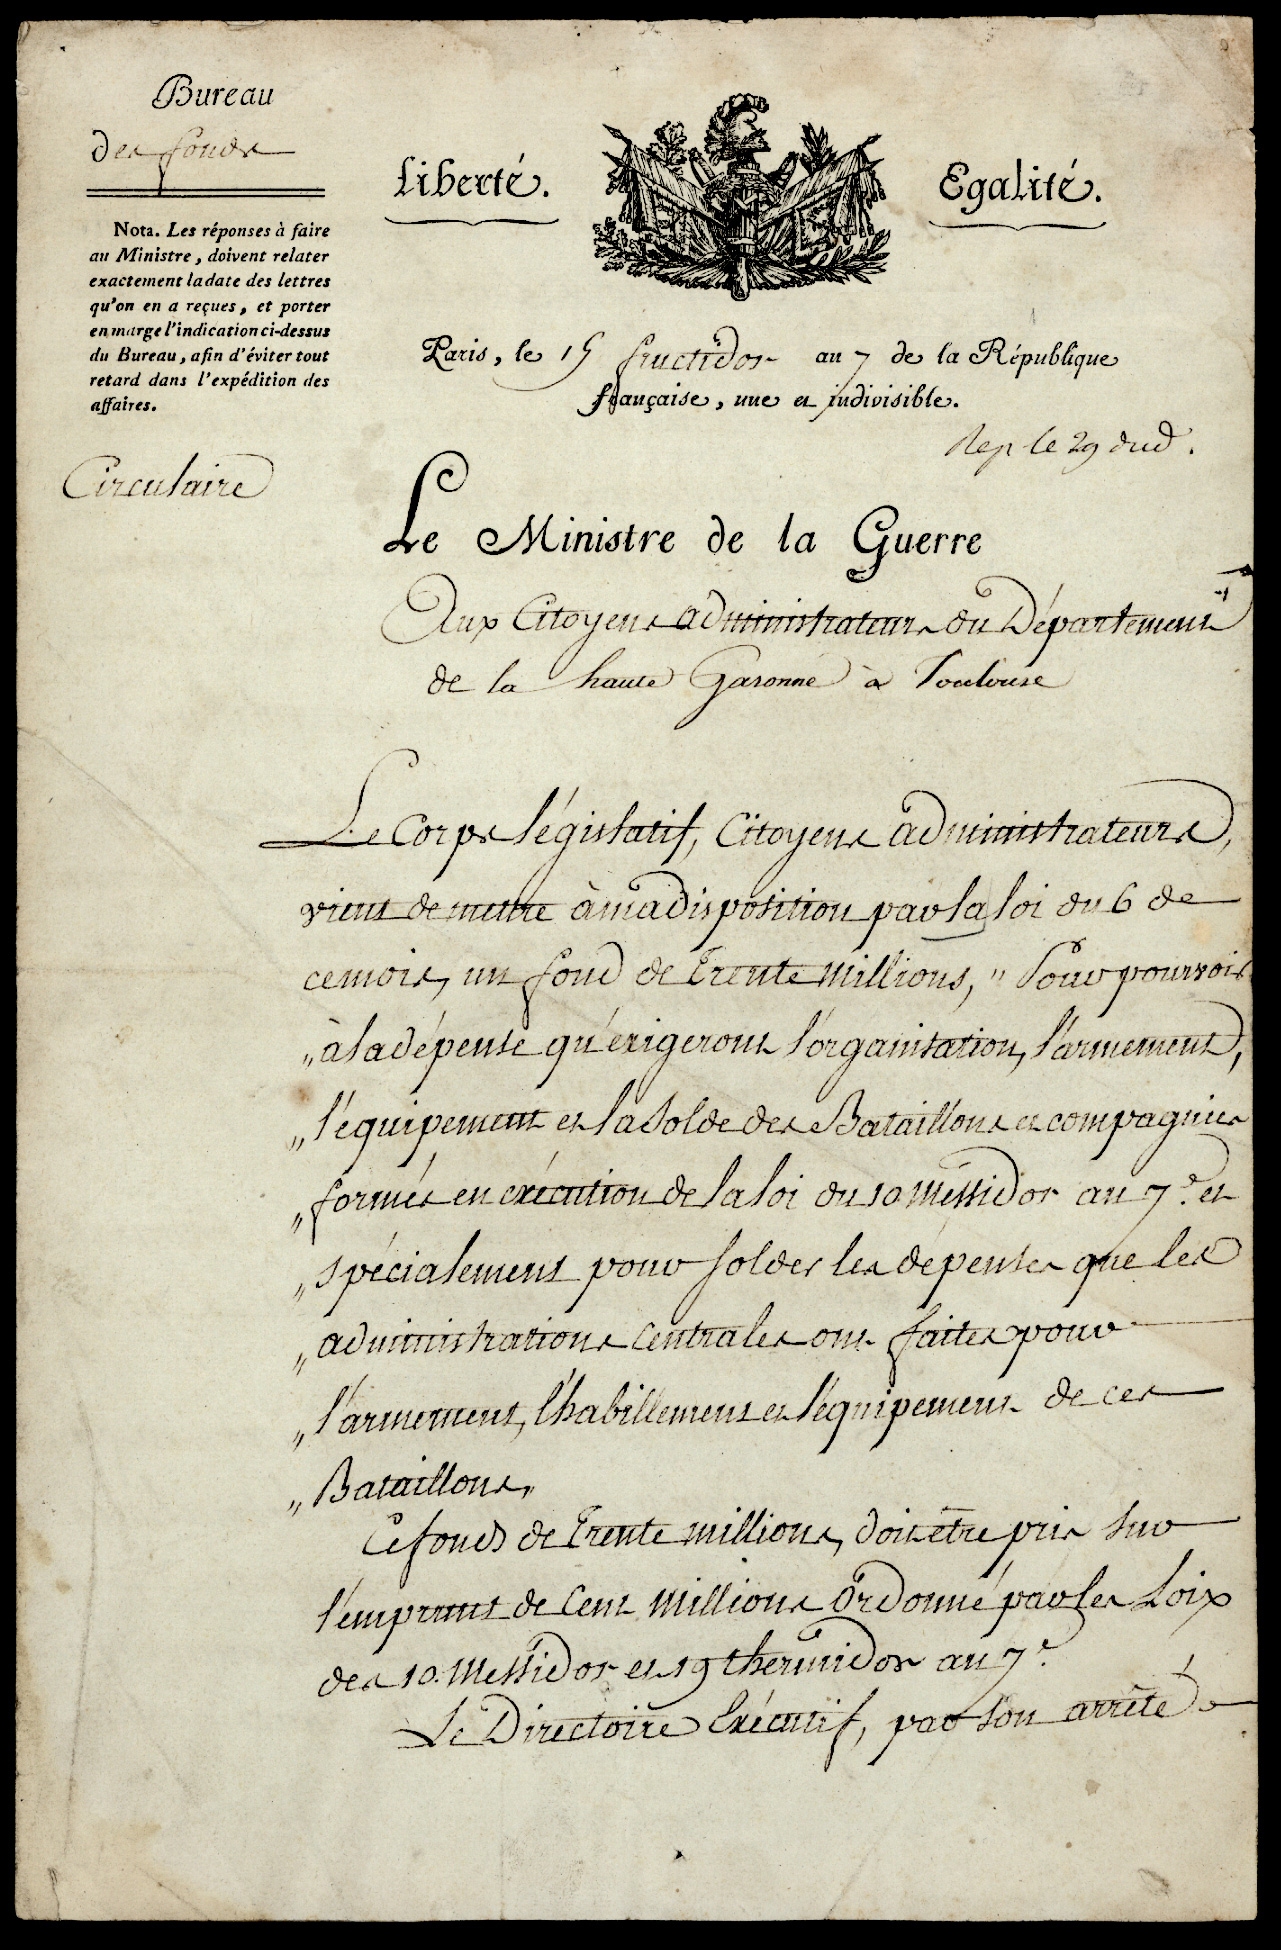 Bureau
des fonds
Nota. Les réponses à faire
au Ministre, doivent relater
exactement la date des lettres
qu'on en a reçues, et porter
en marge l'indication ci-dessus
du Bureau, afin d'éviter tout
retard dans l'expédition des
affaires.
Circulaire
Liberté. Egalité.
Paris, le 15 fructidor an 7 de la République
française, une et indivisible.
Rep le 29 dud.
Le Ministre de la Guerre
Aux Citoyens administrateurs du Département
de la haute Garonne à Toulouse
Le Corps législatif, Citoyens administrateurs,
vient de mettre à ma disposition par la loi du 6 de
ce mois, un fond de trente millions, " Pour pourvoir
" à la dépense qu'exigeront l'organisation, l'armement,
" l'équipement et la solde des Bataillons et compagnies
" formés en exécution de la loi du 10 Messidor an 7e. et
" spécialement pour solder les dépenses que les
" administrations centrales ont faites pour
" l'armement, l'habillement et l'équipement de ces
" Bataillons,"
Ce fonds de trente millions, doit être pris sur
l'emprunt de Cent Millions ordonné par les Loix
des 10. Messidor et 19 thermidor an 7e.
Le Directoire Exécutif, par son arrêté